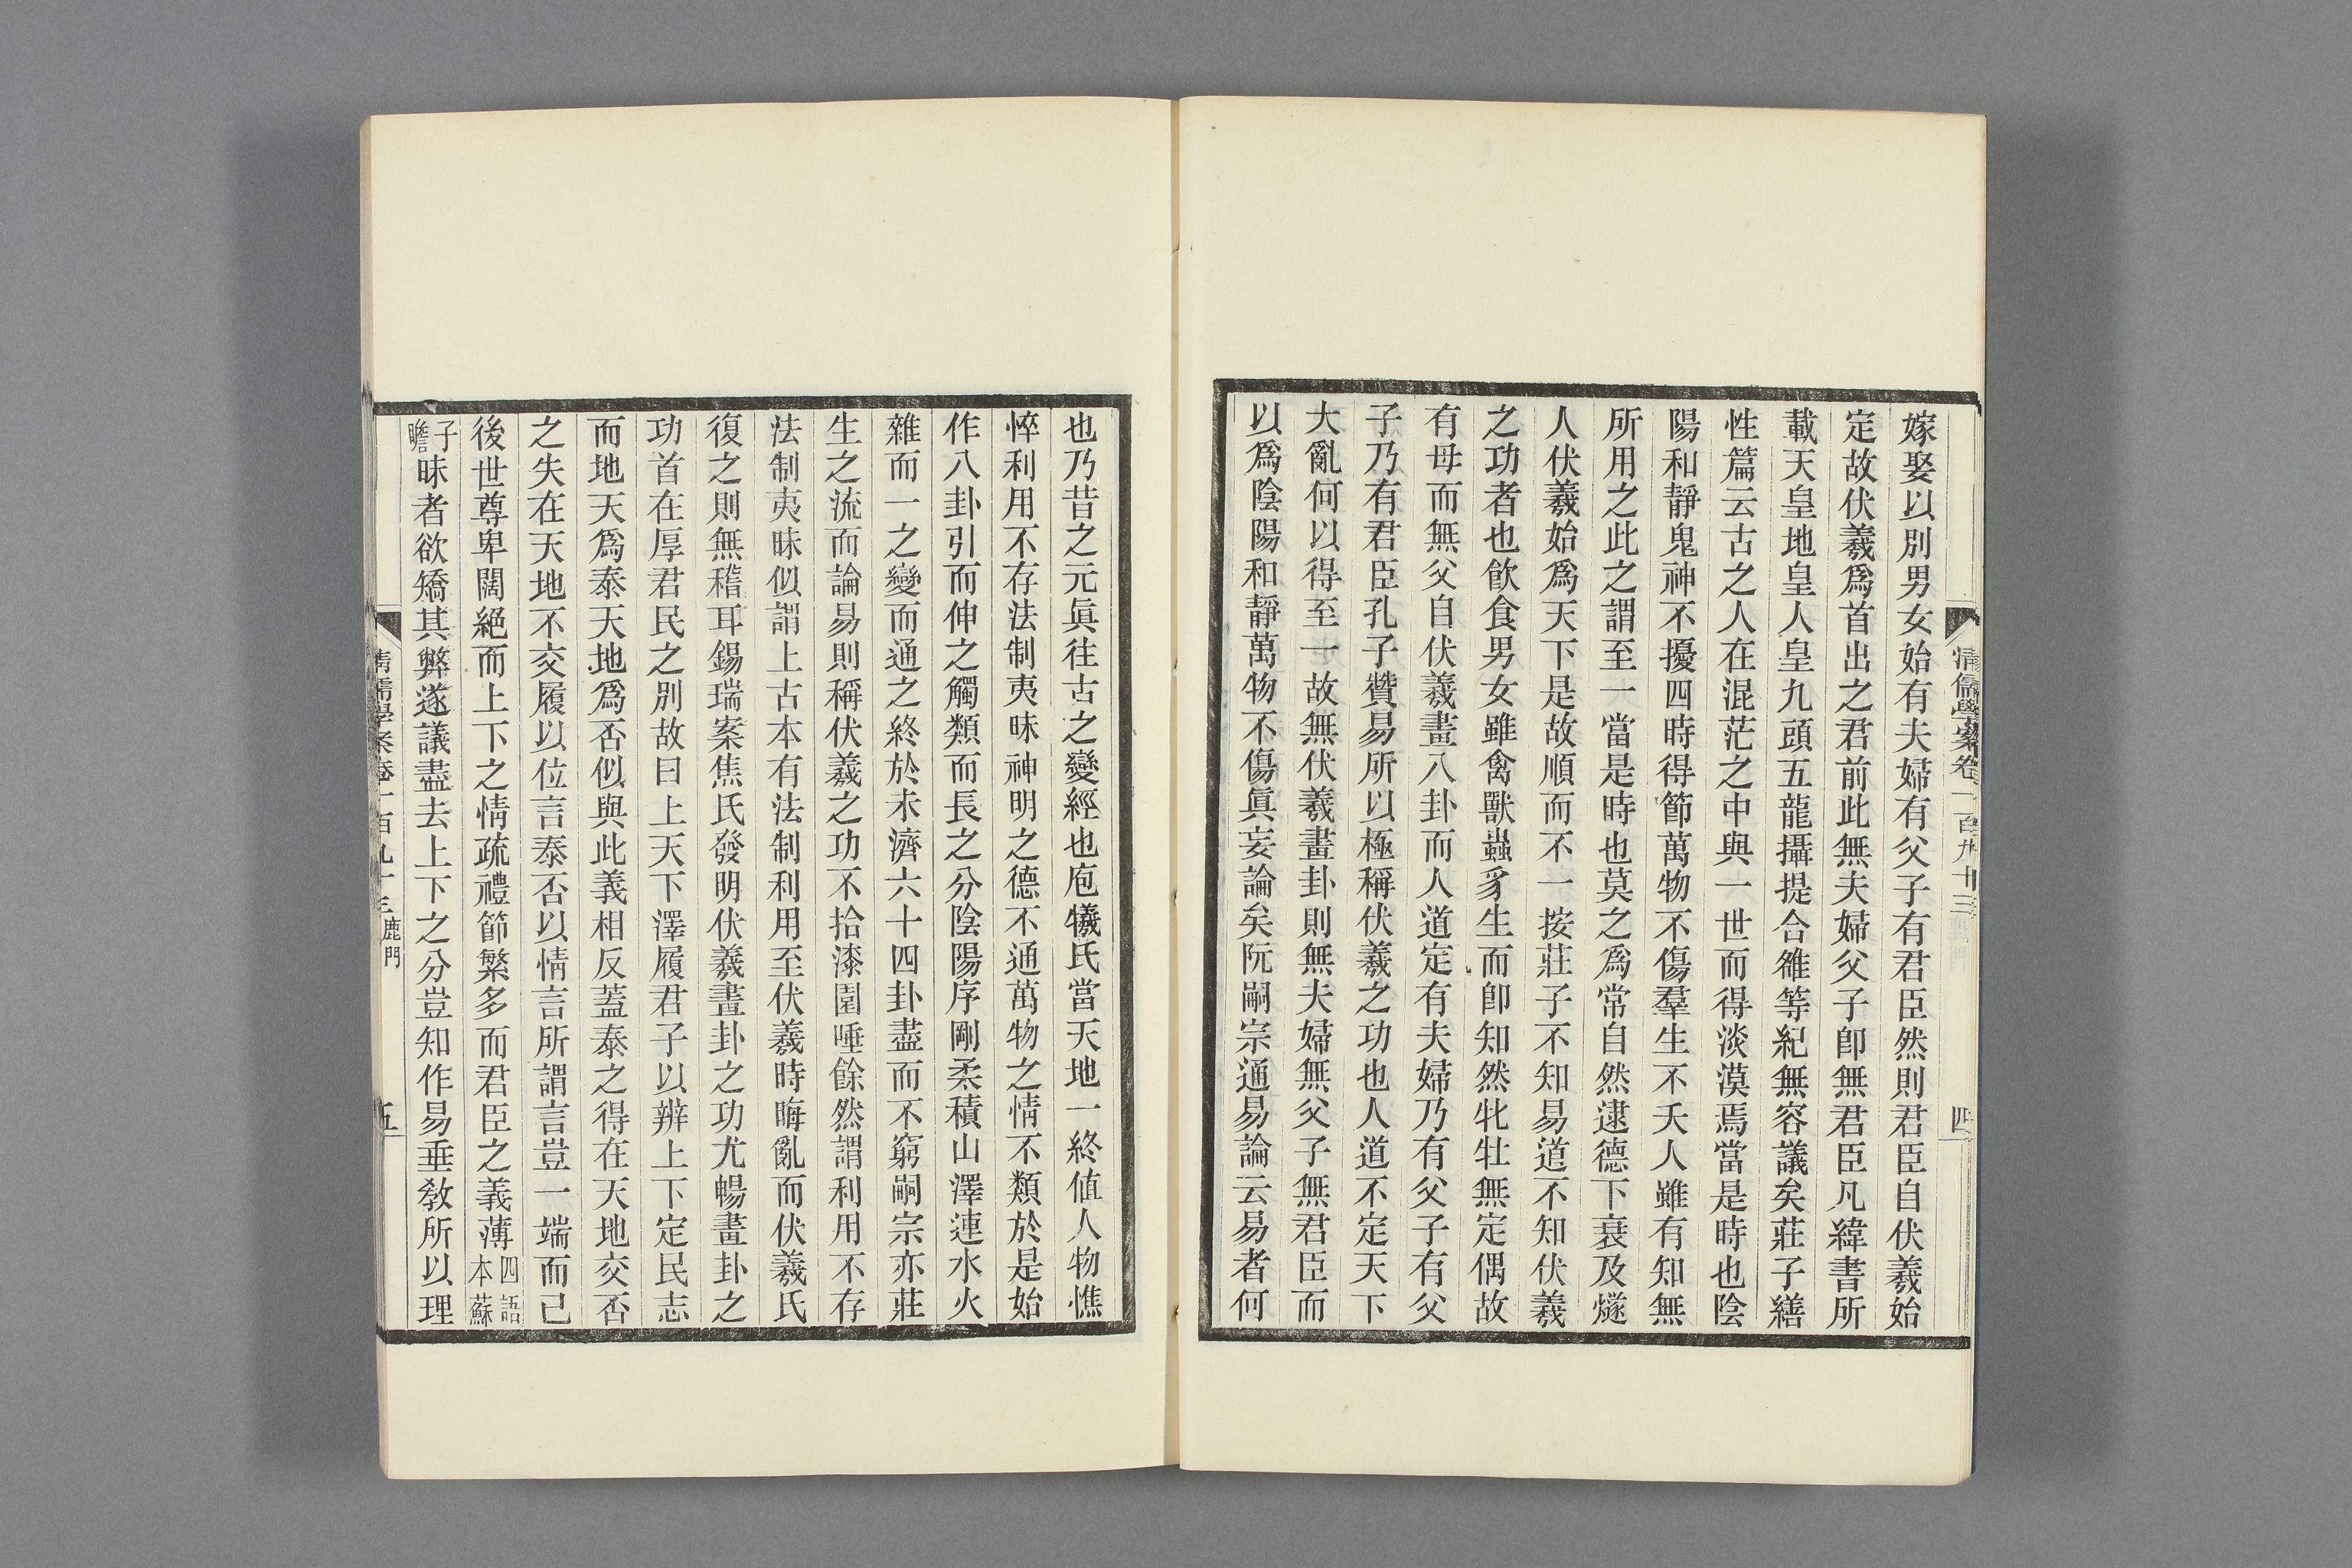 清儒學案卷一百九十三
四
嫁娶以別男女始有夫婦有父子有君臣然則君臣自伏羲始
定故伏羲爲首出之君前此無夫婦父子卽無君臣凡緯書所
載天皇地皇人皇九頭五龍攝提合雒等紀無容議矣莊子繕
性篇云古之人在混茫之中與一世而得淡漠焉當是時也陰
陽和靜鬼神不擾四時得節萬物不傷羣生不夭人雖有知無
所用之此之謂至一當是時也莫之爲常自然逮德下衰及燧
人伏羲始爲天下是故順而不一按莊子不知易道不知伏羲
之功者也飮食男女雖禽獸蟲豸生而卽知然牝牡無定偶故
有母而無父自伏羲畫八卦而人道定有夫婦乃有父子有父
子乃有君臣孔子贊易所以極稱伏羲之功也人道不定天下
大亂何以得至一故無伏羲畫卦則無夫婦無父子無君臣而
以爲陰陽和靜萬物不傷眞妄論矣阮嗣宗通易論云易者何
也乃昔之元眞往古之變經也庖犧氏當天地一終値人物憔
悴利用不存法制夷昧神明之德不通萬物之情不類於是始
作八卦引而伸之觸類而長之分陰陽序剛柔積山澤連水火
雜而一之變而通之終於未濟六十四卦盡而不窮嗣宗亦莊
生之流而論易則稱伏羲之功不拾漆園唾餘然謂利用不存
法制夷昧似謂上古本有法制利用至伏羲時晦亂而伏羲氏
復之則無稽耳錫瑞案焦氏發明伏羲畫卦之功尤暢畫卦之
功首在厚君民之別故曰上天下澤履君子以辨上下定民志
而地天爲泰天地爲否似與此義相反蓋泰之得在天地交否
之失在天地不交履以位言泰否以情言所謂言豈一端而已
後世尊卑闊絕而上下之情疏禮節繁多而君臣之義薄四語本蘇
子瞻昧者欲矯其弊遂議盡去上下之分豈知作易垂敎所以理
清儒學案卷一百九十三 鹿門
五